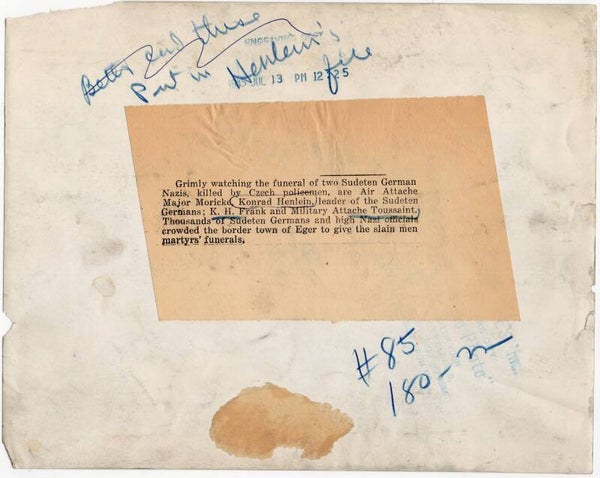 Better end these
Put in Henlein's
file
JUL 13 PM 12 25
Grimly watching the funeral of two Sudeten German
Nazis, killed by Czech policemen, are Air Attache
Major Moricke, Konrad Henlein, leader of the Sudeten
Germans; K. H. Frank and Military Attache Toussaint.
Thousands of Sudeten Germans and high Nazi officials
crowded the border town of Eger to give the slain men
martyrs' funerals.
#85
180-m